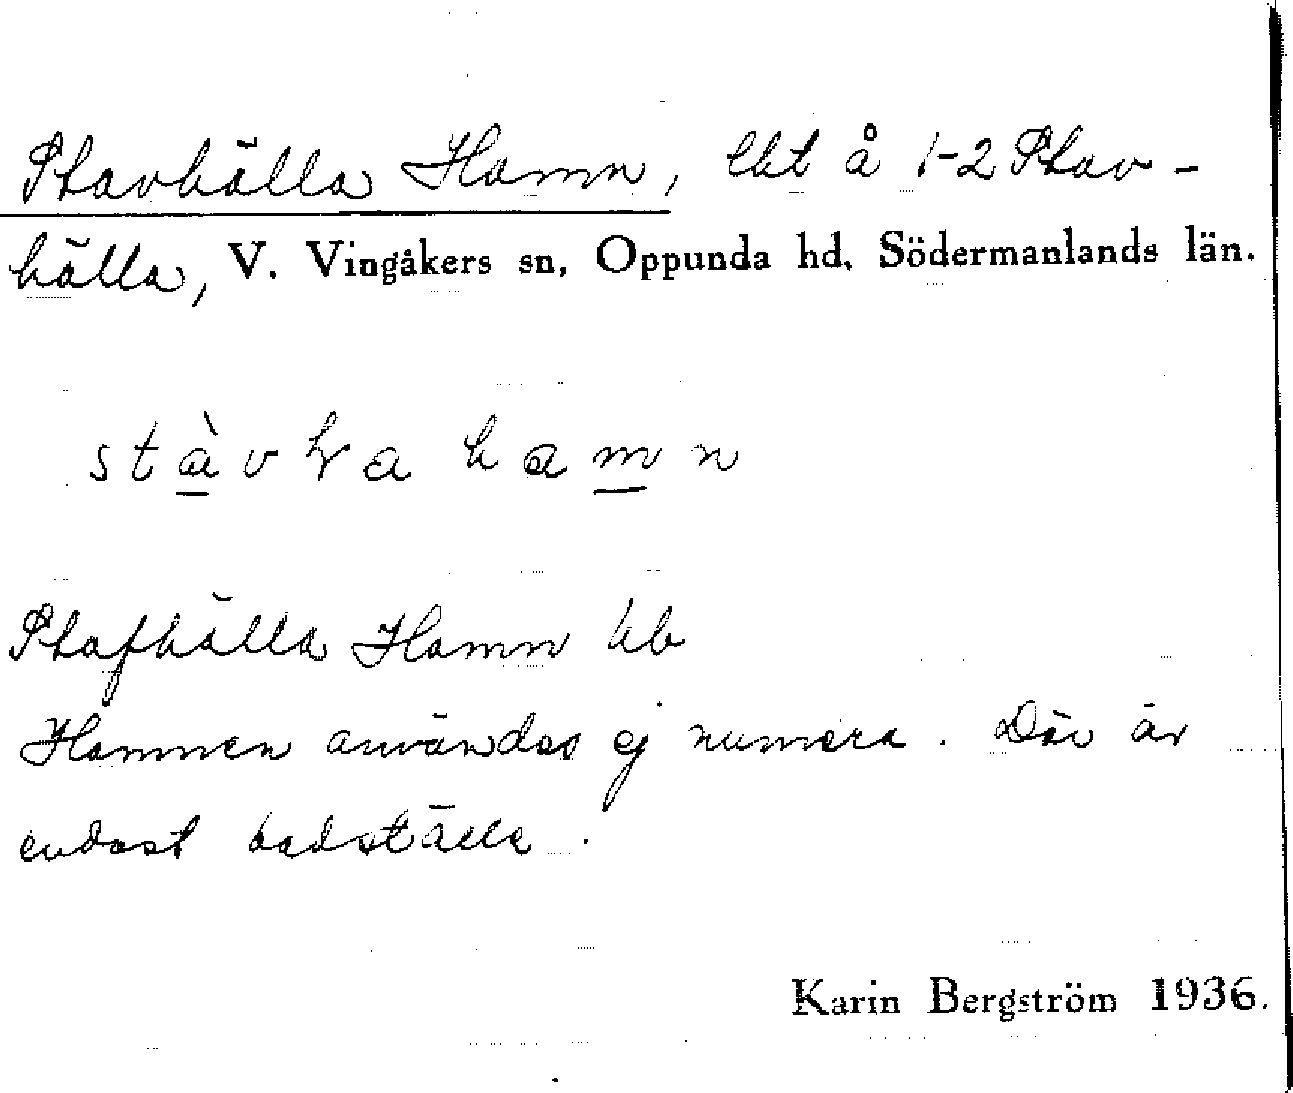 Stavhälla Hamn, lht å 1-2 Stav-
hälla, V. Vingåkers sn, Oppunda hd, Södermanlands län.
stàvla hamn
Stafhälla Hamn hb
Hamnen användes ej numera. Där är
endast badställe.
Karin Bergström 1936.